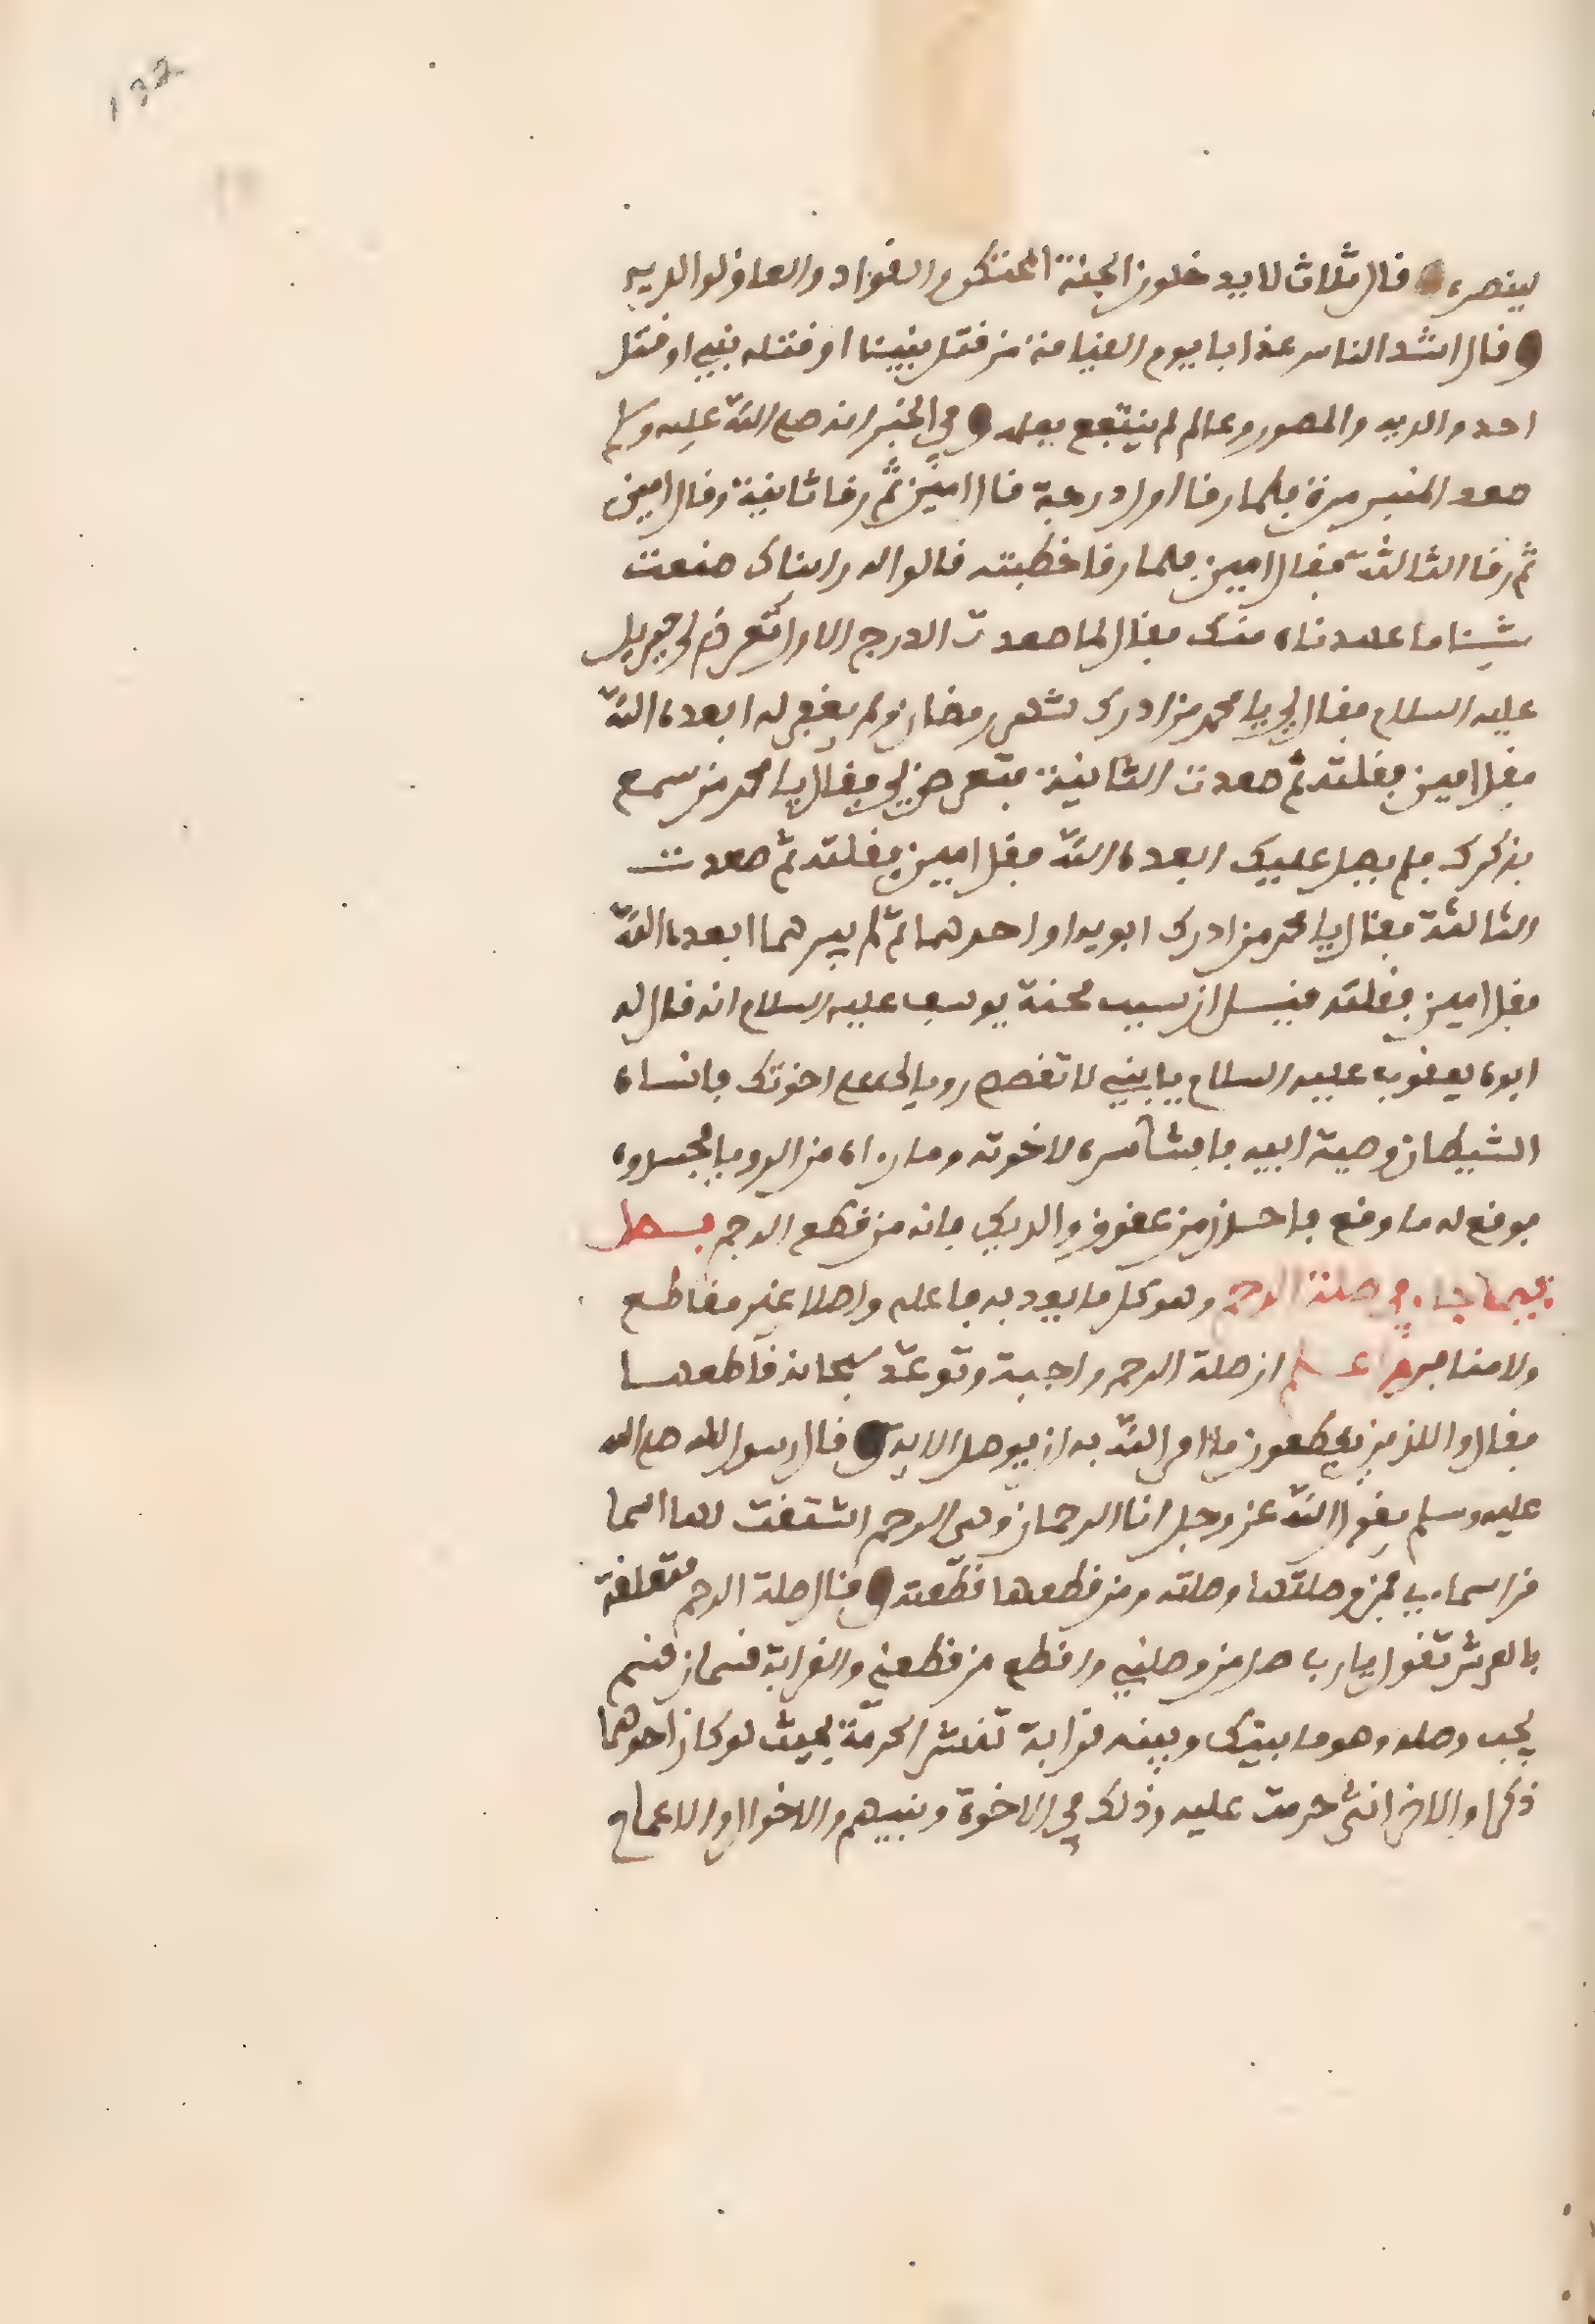 132
لينصره و قال ثلاث لا يدخلون الجنة المحتكر والقواد والعاق لوالديه
و قال اشد الناس عذابا يوم القيامة من قتل نبينا او قتله نبي او قتل
احد والديه والمصور وعالم لم ينتفع بعلمه و في الخبر انه صلى الله عليه وسلم
صعد المنبر مرة فلما رقا اول درجة قال امين ثم رقا ثانية وقال امين
ثم رقا الثالثة فقال امين فلما رقا خطبته قالوا له رايناك صنعت
شيئا ما عهدناه منك فقال لما صعدت الدرج الاول تعرض لي جبريل
عليه السلام فقال لي يا محمد من ادرك شهر رمضان ولم يغفر له ابعده الله
فقل امين فقلته ثم صعدت الثانية فتعرض لي فقال يا محمد من سمع
بذكرك فلم يصل عليك ابعده الله فقل امين فقلته ثم صعدت
الثالثة فقال يا محمد من ادرك ابويه او احدهما ثم لم يبرهما ابعده الله
فقل امين فقلته فقيل ان سبب محنة يوسف عليه السلام انه قال له
ابوه يعقوب عليه السلام يا بني لا تقصص روياك على اخوتك فانساه
الشيطان وصية ابيه فافشا سره لاخوته وما رءاه من الرويا فحسدوه
فوقع له ما وقع فاحذر من عقوق والديك فانه من قطع الرحم فصل
فيما جاء في صلة الرحم وهو كل ما يعد به فاعله واصلا غير مقاطع
ولا منافر اعلم ان صلة الرحم واجبة وتوعد سبحانه قاطعها
فقال والذين يقطعون ما امر الله به ان يوصل الاية و قال رسول الله صلى الله
عليه وسلم يقول الله عز وجل انا الرحمان وهي الرحم اشتققت لها اسما
من اسماءي فمن وصلها وصلته ومن قطعها قطعته و قال صلة الرحم متعلقة
بالعرش تقول يا رب صل من وصلني واقطع من قطعني والقرابة قسمان قسم
يجب وصله وهو ما بينك وبينه قرابة تنشر الحرمة بحيث لو كان احدهما
ذكرا والاخر انثى حرمت عليه وذلك في الاخوة وبنيهم والاخوال والاعمام